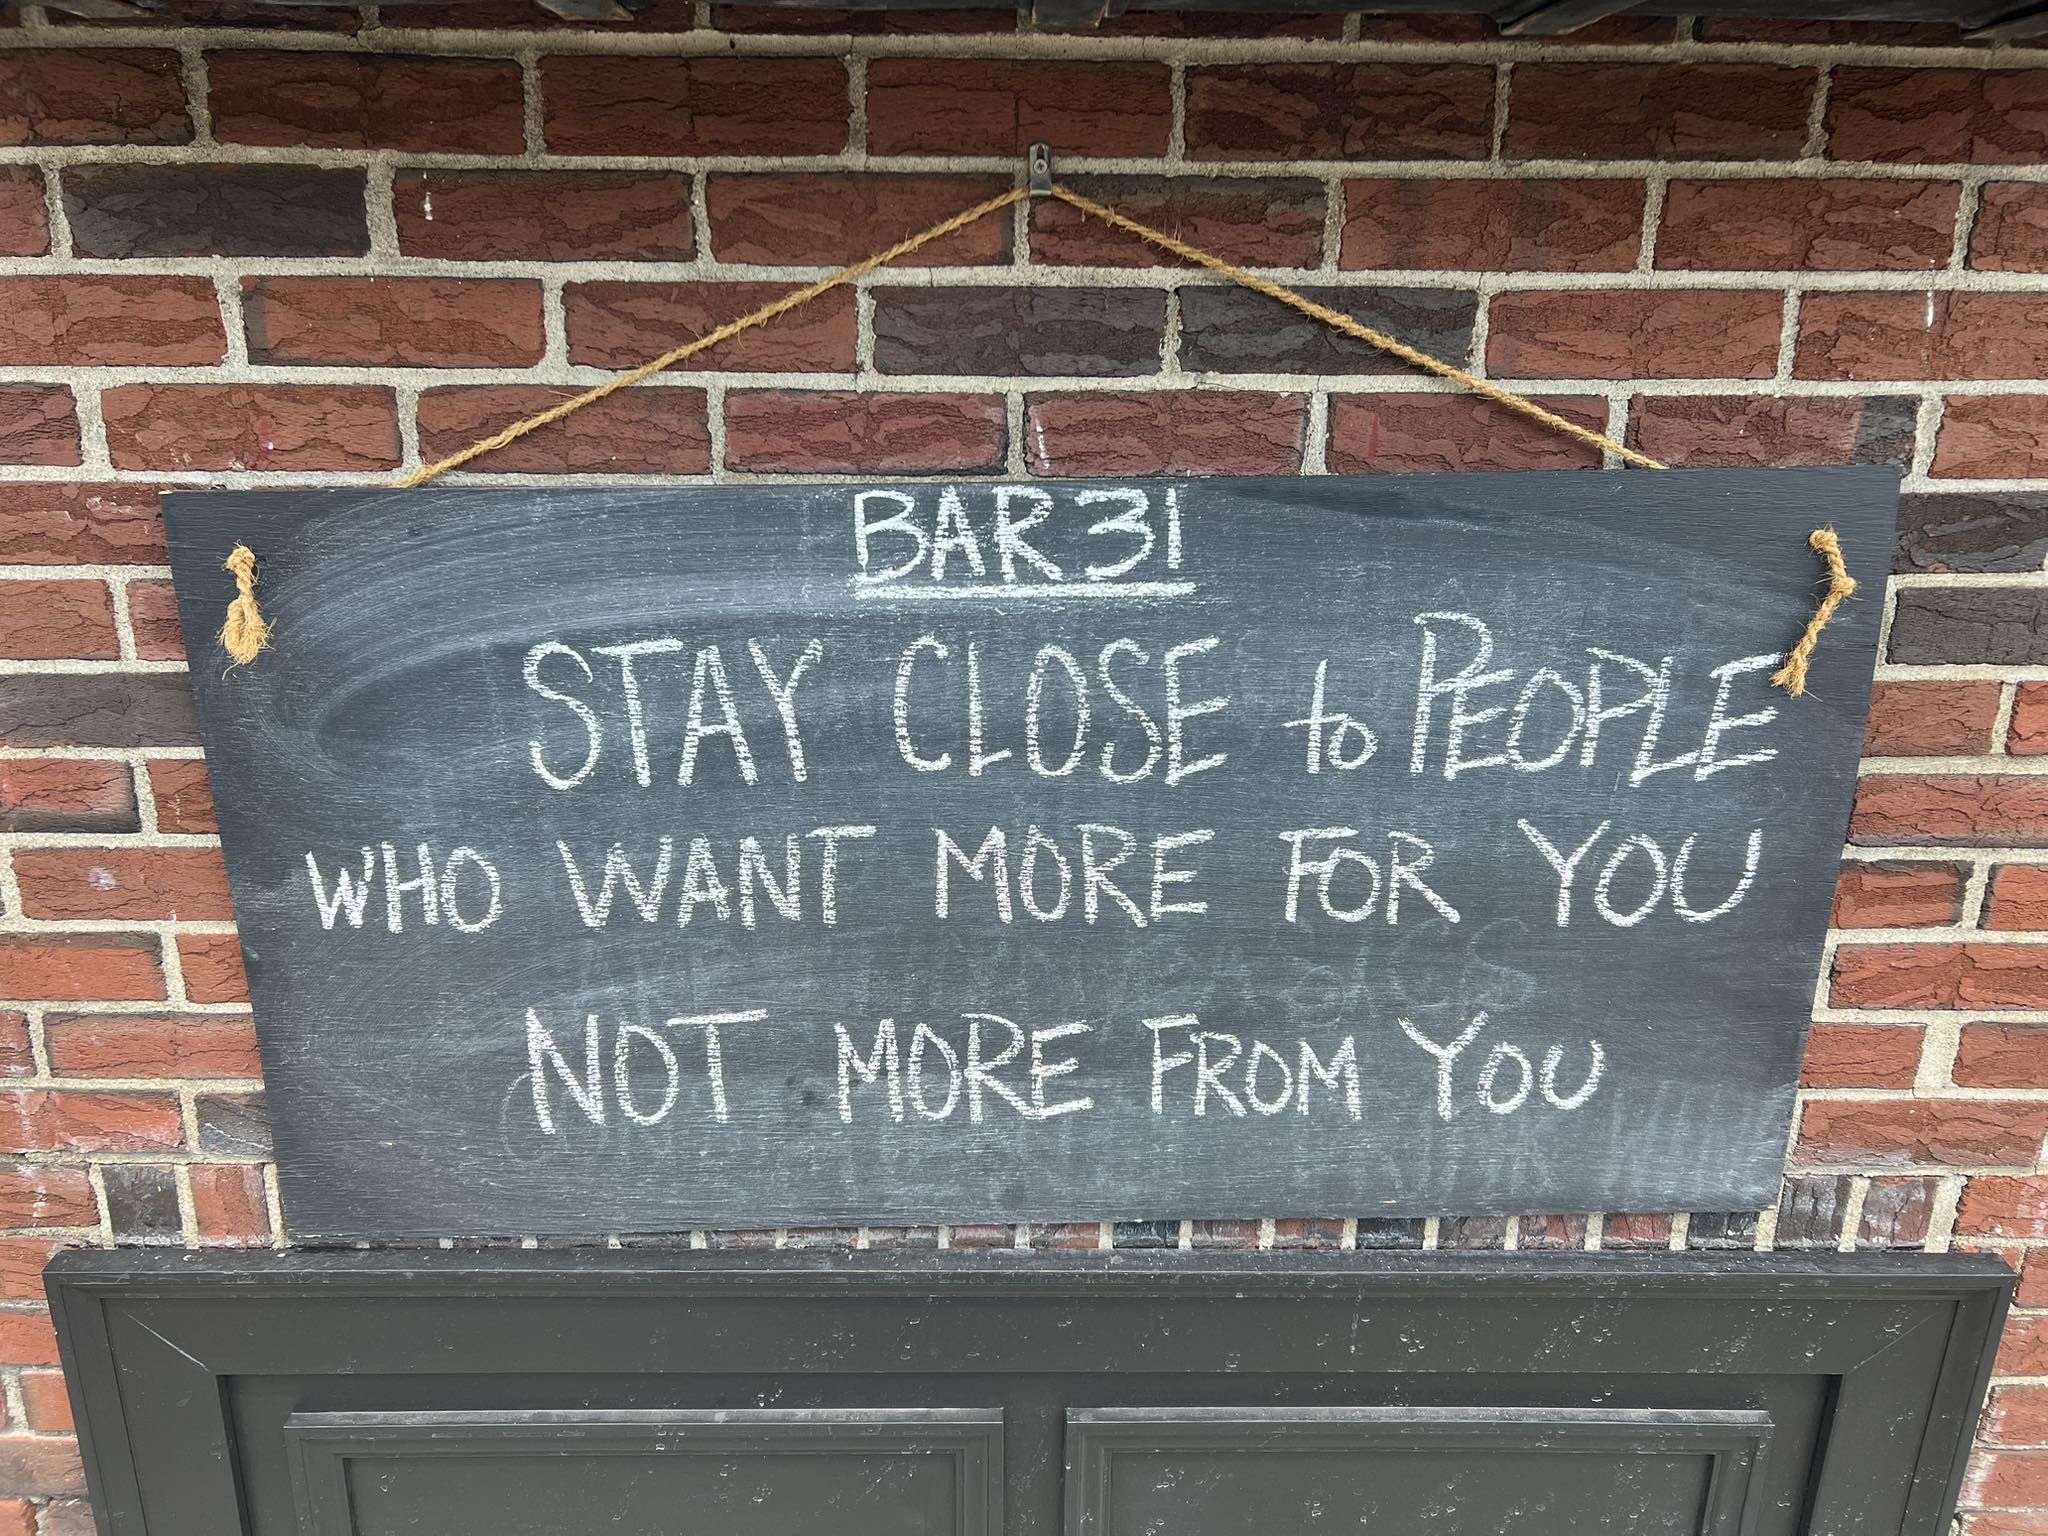 BAR 31
STAY CLOSE to PEOPLE
WHO WANT MORE FOR YOU
NOT MORE FROM YOU